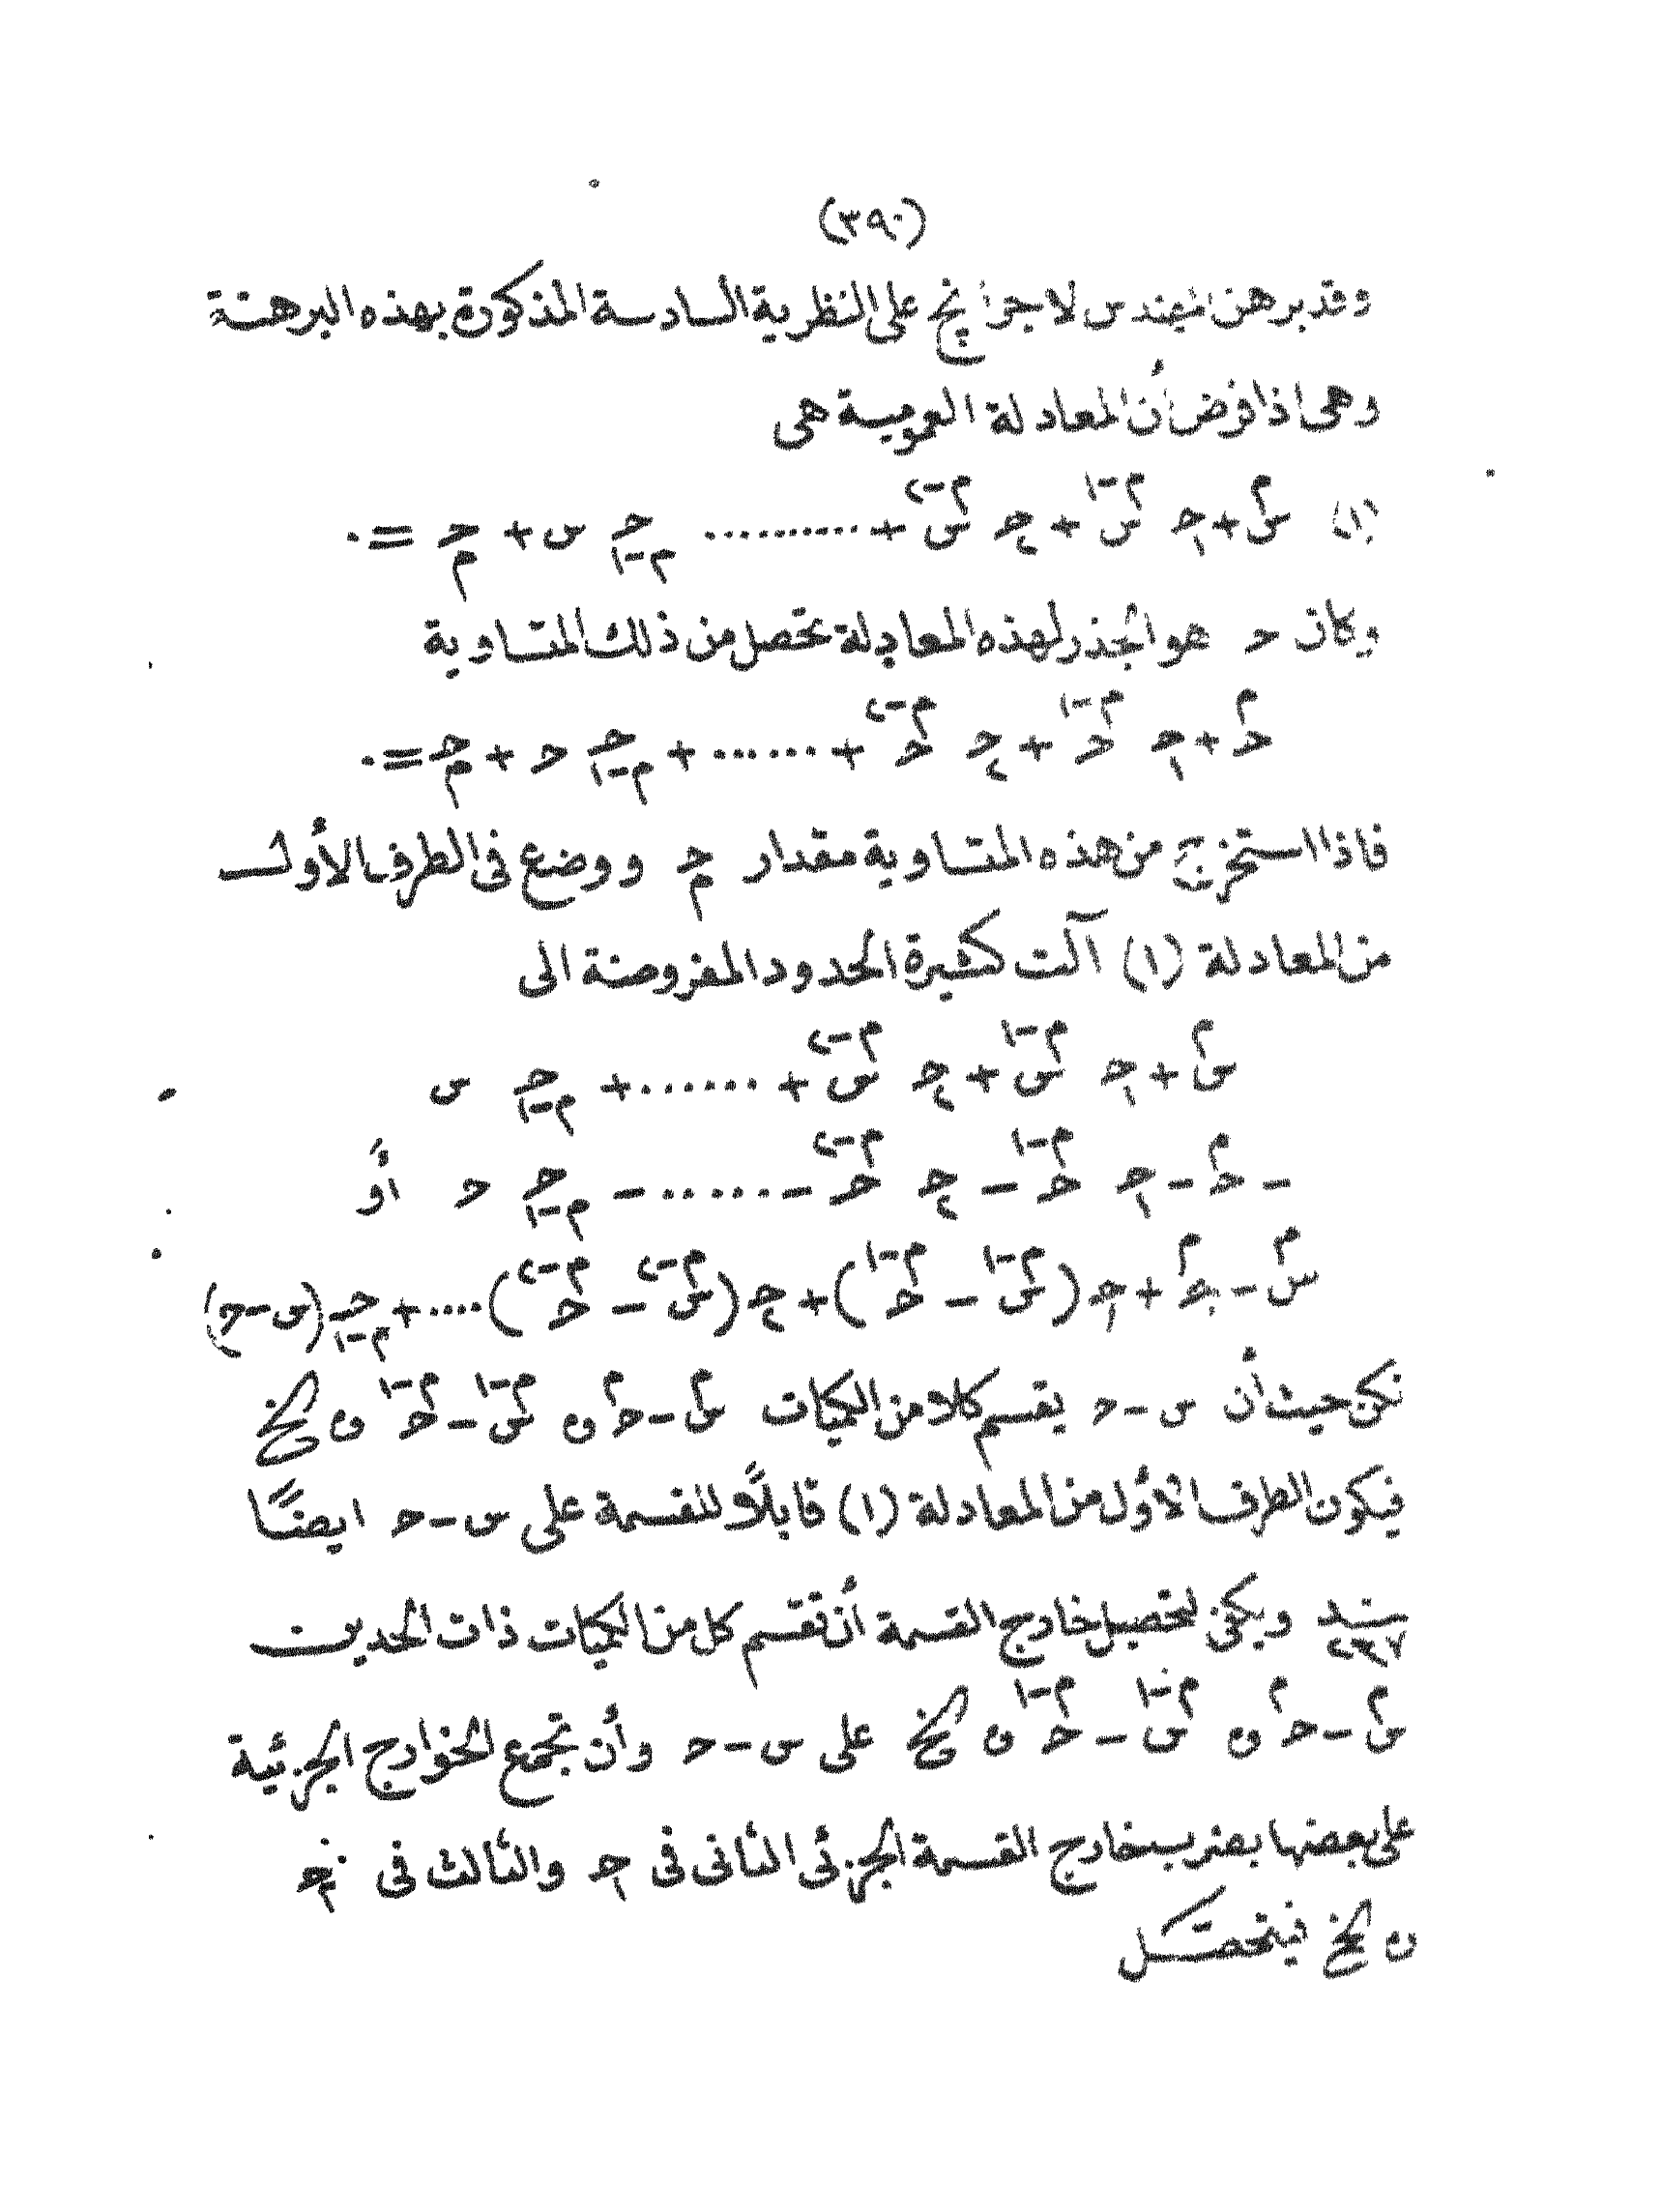 (٣٩٠)
وقد برهن المهندس لاجرانج على النظرية السادسة المذكورة بهذه البرهنة
وهى اذا فرض أن المعادلة العمومية هى
(١) س^م + حـ_١ س^(م-١) + حـ_٢ س^(م-٢) + .......... حـ_(م-١) س + حـ_م = ٠
وكان ح هو الجذر لهذه المعادلة تحصل من ذلك المتساوية
ح^م + حـ_١ ح^(م-١) + حـ_٢ ح^(م-٢) + ...... + حـ_(م-١) ح + حـ_م = ٠
فاذا استخرج من هذه المتساوية مقدار حـ_م ووضع فى الطرف الأول
من المعادلة (١) آلت كثيرة الحدود المفروضة الى
س^م + حـ_١ س^(م-١) + حـ_٢ س^(م-٢) + ...... + حـ_(م-١) س
- ح^م - حـ_١ ح^(م-١) - حـ_٢ ح^(م-٢) - ...... - حـ_(م-١) ح أو
س^م - ح^م + حـ_١ (س^(م-١) - ح^(م-١)) + حـ_٢ (س^(م-٢) - ح^(م-٢)) .... + حـ_(م-١) (س - ح)
لكن حيث أن س - ح يقسم كلا من الكميات س^م - ح^م و س^(م-١) - ح^(م-١) و الخ
فيكون الطرف الأول من المعادلة (١) قابلاً للقسمة على س - ح ايضًا
بند ٢٦٧ ويكفى لتحصيل خارج القسمة أن تقسم كل من الكميات ذات الحدين
س^م - ح^م و س^(م-١) - ح^(م-١) و الخ على س - ح وأن تجمع الخوارج الجزئية
على بعضها بضرب خارج القسمة الجزئى الثانى فى حـ_١ والثالث فى حـ_٢
و الخ فيتحصل